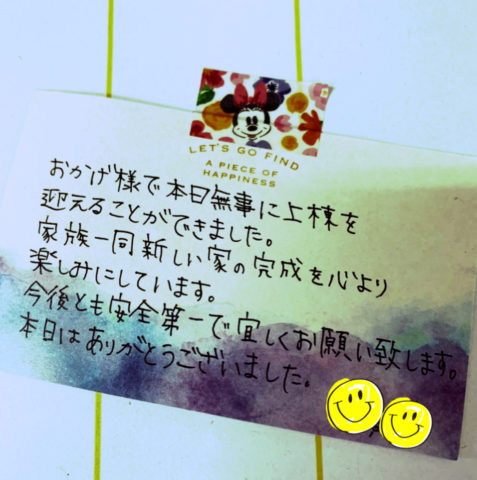 LET'S GO FIND
A PIECE OF
HAPPINESS
おかげ様で本日無事に上棟を
迎えることができました。
家族一同新しい家の完成を心より
楽しみにしています。
今後とも安全第一で宜しくお願い致します。
本日はありがとうございました。